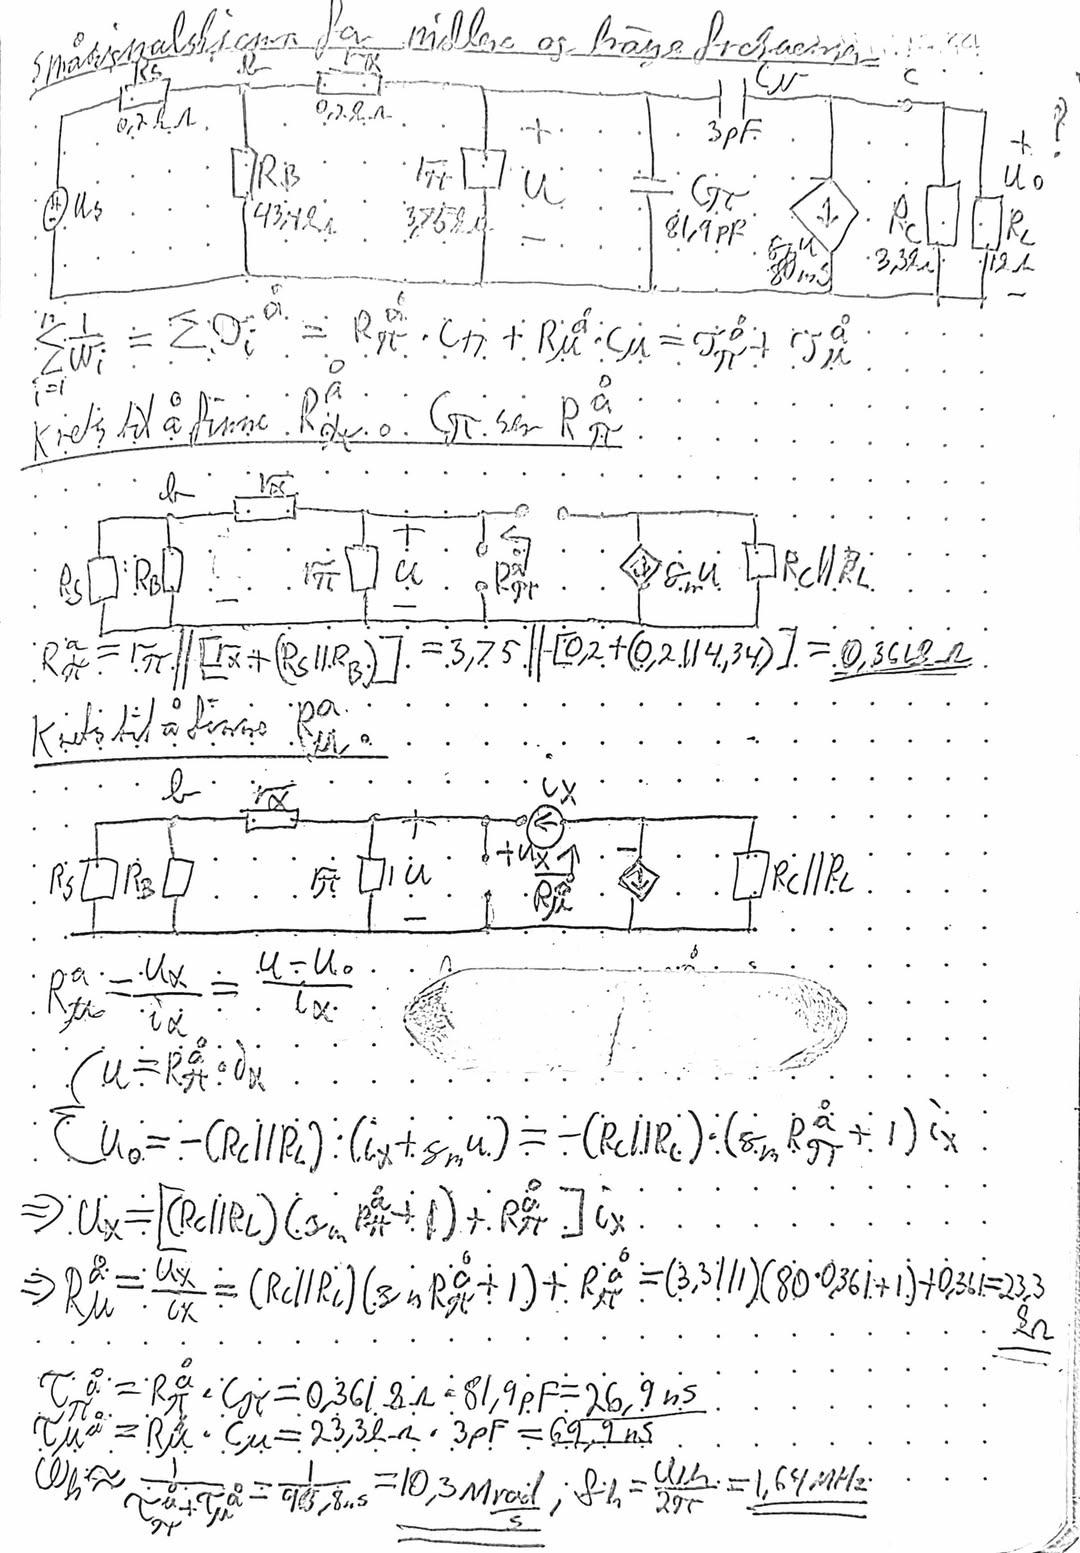 småsignalskjema for midlere og høye frekvenser
Rs b rx Cμ c
0,2kΩ 0,2kΩ 3pF ?
us RB 43,4kΩ rπ 3,75kΩ + u − Cπ 81,9pF gmu 80mS RC 3,3kΩ RL 1kΩ + uo −
n∑i=1 1/ωi = ∑ τi^å = Rπ^å · Cπ + Rμ^å · Cμ = τπ^å + τμ^å
Krets til å finne Cπ ser Rπ^å
b rx
Rs RB rπ + u − Rπ^å gmu RC||RL
Rπ^å = rπ || [rx + (Rs||RB)] = 3,75 || [0,2 + (0,2||4,34)] = 0,361kΩ
Krets til å finne Rμ^å
b rx ix
Rs RB rπ + u − + ux − Rμ^å RC||RL
Rμ^å = ux/ix = u − uo/ix
u = Rπ^å · ix
uo = −(RC||RL) · (ix + gmu) = −(RC||RL) · (gm Rπ^å + 1) ix
⇒ ux = [(RC||RL)(gm Rπ^å + 1) + Rπ^å] ix
⇒ Rμ^å = ux/ix = (RC||RL)(gm Rπ^å + 1) + Rπ^å = (3,3||1)(80·0,361+1)+0,361=23,3
kΩ
τπ^å = Rπ^å · Cπ = 0,361kΩ · 81,9pF = 26,9ns
τμ^å = Rμ^å · Cμ = 23,3kΩ · 3pF = 69,9ns
ωh ≈ 1/τπ^å+τμ^å = 1/96,8ns = 10,3 Mrad/s ; fh = ωh/2π = 1,64MHz